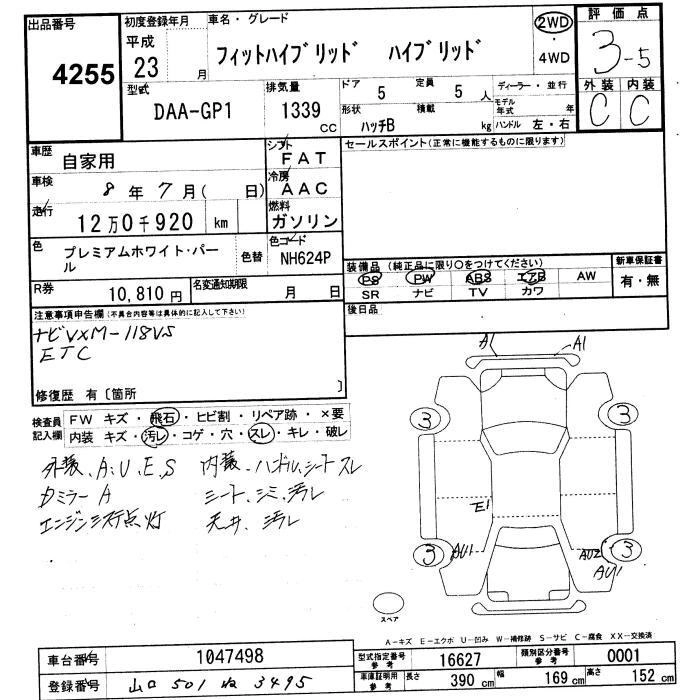 出品番号
4255
初度登録年月
平成
23 月
車名・グレード
フィットハイブリッド ハイブリッド
2WD
・
4WD
評価点
3-5
外装 内装
C C
型式
DAA-GP1
排気量
1339 CC
ドア
5
定員
5 人
形状
ハッチB
積載
kg
ディーラー・並行
モデル年式 年
ハンドル 左・右
車歴
自家用
シフト
FAT
車検
8 年 7 月( 日)
冷房
AAC
走行
12万0千920 km
燃料
ガソリン
色
プレミアムホワイト・パール
色替
色コード
NH624P
R券
10,810 円
名変通知期限
月 日
セールスポイント(正常に機能するものに限ります)
装備品 (純正品に限り○をつけてください)
PS PW ABS エアB AW
SR ナビ TV カワ
新車保証書
有・無
後日品
注意事項申告欄(不具合内容等は具体的に記入して下さい)
ナビVXM-118VS
ETC
修復歴 有〔箇所 〕
検査員記入欄
FW キズ・飛石・ヒビ割・リペア跡・×要
内装 キズ・汚レ・コゲ・穴・スレ・キレ・破レ
外装、A、U、E、S 内装、ハンドル、シートスレ
ミラーA シート、シミ、汚レ
エンジン 点灯 天井、汚レ
A1 A1
3 3
E1
3 AU1 AU2 3
AU1
スペア
A-キズ E-エクボ U-凹み W-補修跡 S-サビ C-腐食 XX-交換済
車台番号
1047498
登録番号
山口 501 ね 3495
型式指定番号
参考
16627
類別区分番号
参考
0001
車庫証明用
参考
長さ
390 cm
幅
169 cm
高さ
152 cm